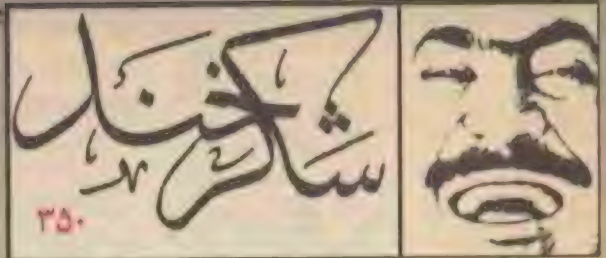 شکرخند
۳۵۰